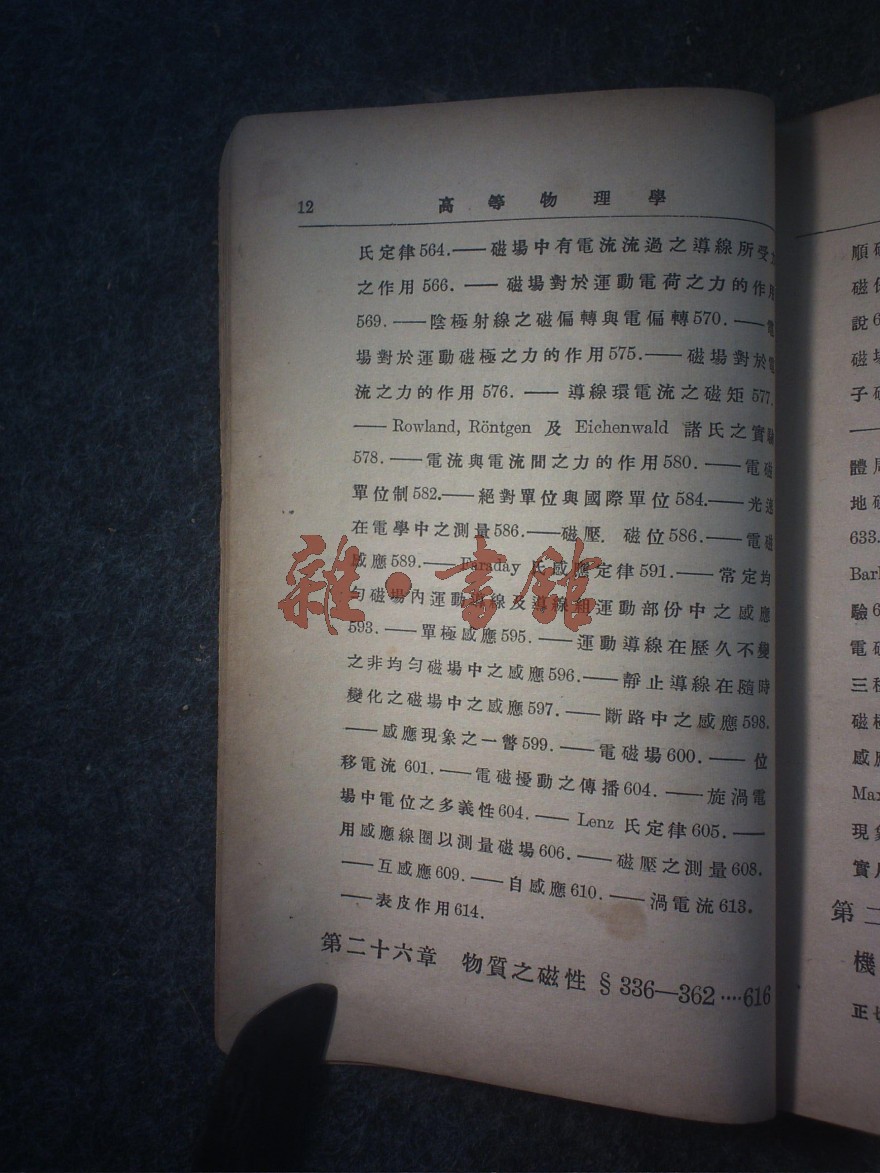 12 高等物理學
氏定律564.——磁場中有電流流過之導線所受
之作用566.——磁場對於運動電荷之力的作用
569.——陰極射線之磁偏轉與電偏轉570.——電
場對於運動磁極之力的作用575.——磁場對於電
流之力的作用576.——導線環電流之磁矩577.
——Rowland, Röntgen 及 Eichenwald 諸氏之實驗
578.——電流與電流間之力的作用580.——電磁
單位制582.——絕對單位與國際單位584.——光速
在電學中之測量586.——磁壓. 磁位586.——電磁
感應589.——Faraday 氏感應定律591.——常定均
勻磁場內運動導線及導線組運動部份中之感應
593.——單極感應595.——運動導線在歷久不變
之非均勻磁場中之感應596.——靜止導線在隨時
變化之磁場中之感應597.——斷路中之感應598.
——感應現象之一瞥599.——電磁場600.——位
移電流601.——電磁擾動之傳播604.——旋渦電
場中電位之多義性604.——Lenz 氏定律605.——
用感應線圈以測量磁場606.——磁壓之測量608.
——互感應609.——自感應610.——渦電流613.
——表皮作用614.
第二十六章 物質之磁性 § 336—362····616
雜·書館
順
磁
說6
磁場
子
——
體
地
633.
Bar
驗6
電
三
磁
感
Max
現
實
第二
機
正